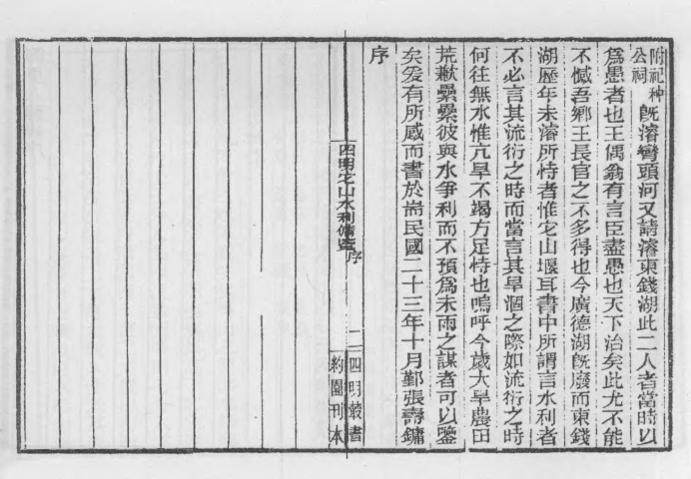 附祀神公祠既濬彎頭河又請濬東錢湖此二人者當時以
爲愚者也王偶翁有言臣盡愚也天下治矣此尤不能
不憾吾鄉王長官之不多得也今廣德湖旣廢而東錢
湖歷年未濬所恃者惟它山堰耳書中所謂言水利者
不必言其流衍之時而當言其旱涸之際如流衍之時
何往無水惟亢旱不竭方足恃也嗚呼今歲大旱農田
荒歉纍纍彼與水爭利而不預爲未雨之謀者可以鑒
矣爰有所感而書於耑民國二十三年十月鄞張壽鏞
序
四明它山水利備覽 序
二
四明叢書
約園刊本